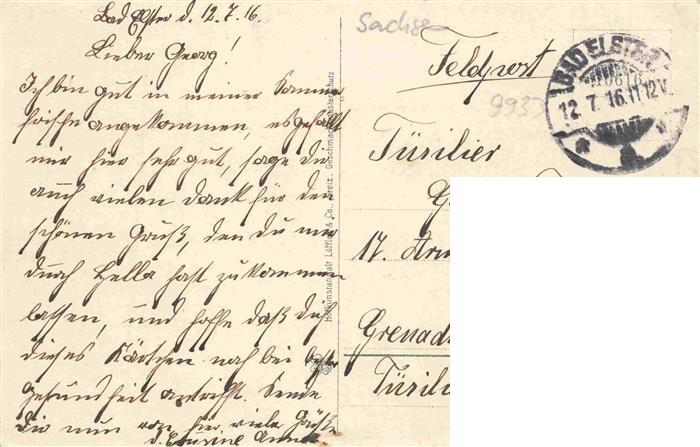 Bad Elster d. 12.7.16
Lieber Georg!
Ich bin gut in meiner Sommer
frische angekommen, es gefällt
mir hier sehr gut, sage dir
auch vielen Dank für den
schönen Gruß, den du mir
durch Hella hast zukommen
lassen, und hoffe daß dich
dieses Kärtchen noch bei bester
Gesundheit antrifft. Sende
dir nun von hier viele Grüße
d.
Sachse
Feldpost
9937
BAD ELSTER
12.7.16.11-12V.
Füsilier
17. Arm
Grenad
Füsilier
Hofkunstanstalt Löffler & Co., Greiz. Geschmacksmusterschutz